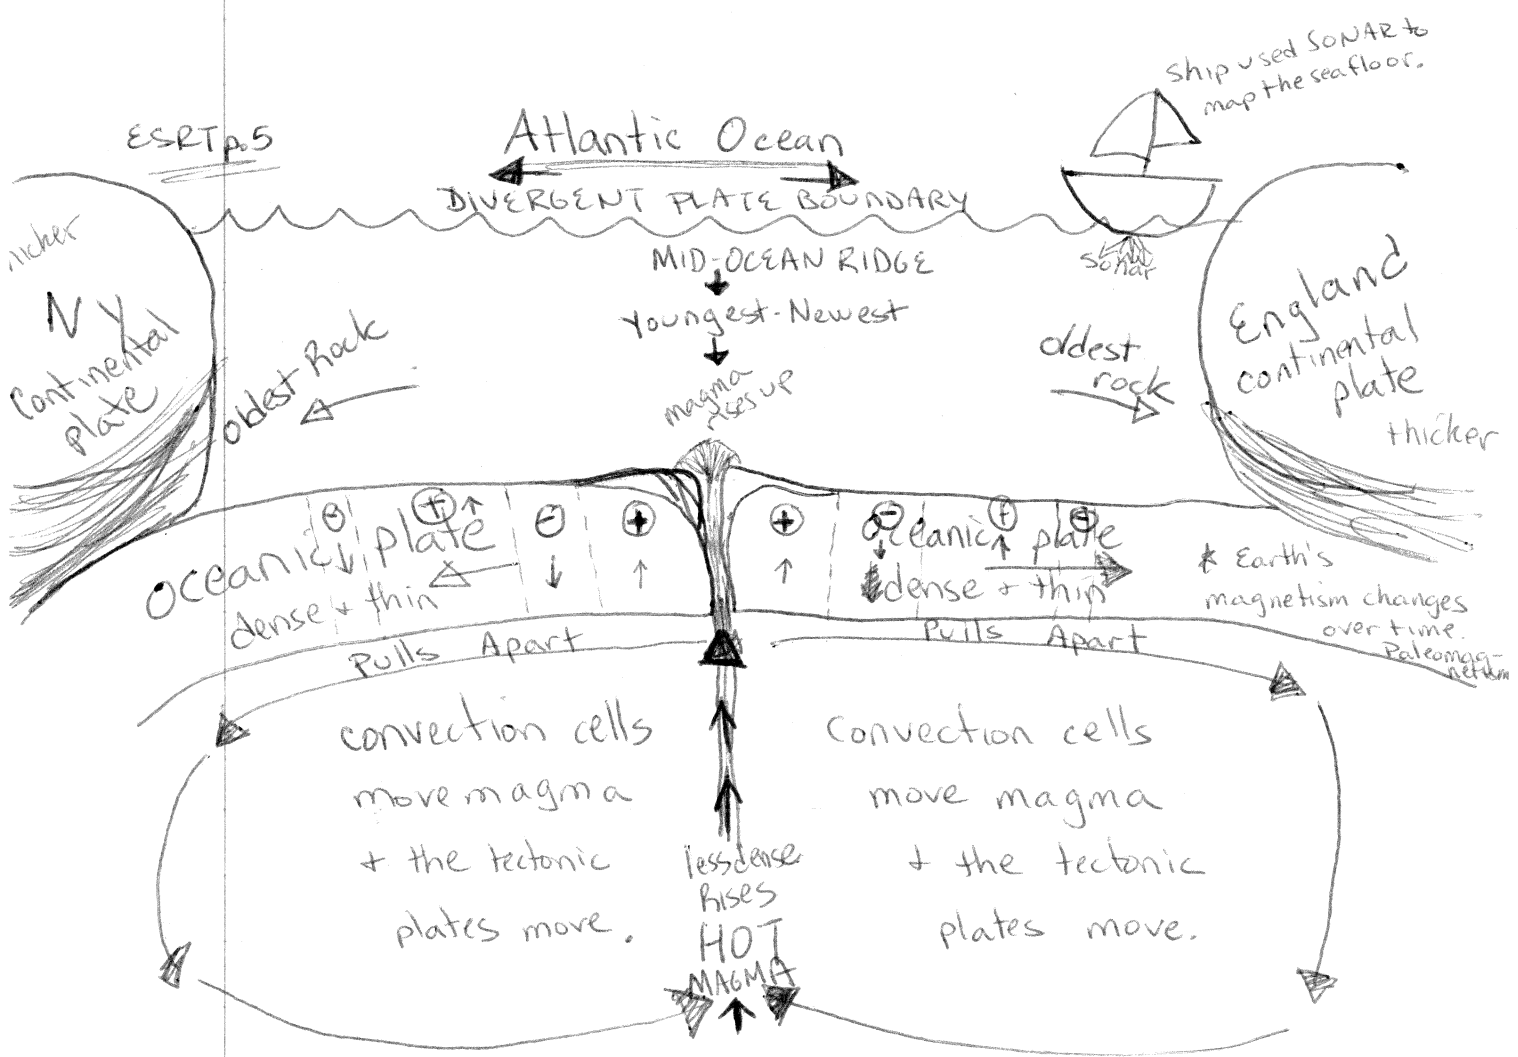 ship used SONAR to
map the seafloor.
ESRT p.5
Atlantic Ocean
DIVERGENT PLATE BOUNDARY
MID-OCEAN RIDGE
sonar
Youngest-Newest
NY
Continental
plate
oldest Rock
magma
rises up
oldest
rock
England
continental
plate
thicker
⊖ ⊕ ⊖ ⊕ ⊕ ⊖ ⊕ ⊖
oceanic plate
dense + thin
oceanic plate
dense + thin
* Earth's
magnetism changes
over time.
Paleomag-
netism
Pulls Apart
Pulls Apart
convection cells
move magma
+ the tectonic
plates move.
convection cells
move magma
+ the tectonic
plates move.
less dense
Rises
HOT
MAGMA